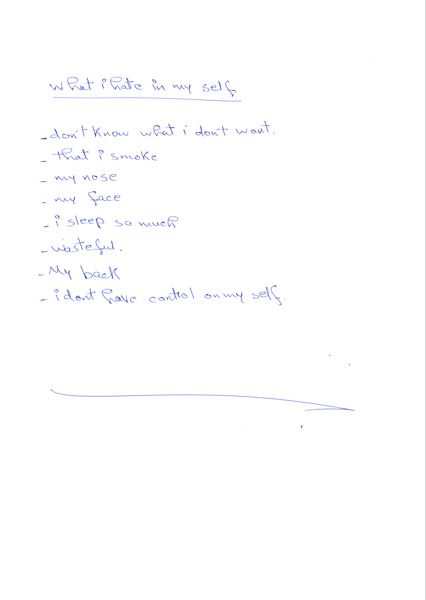 what i hate in my self
- don't know what i don't want.
- that i smoke
- my nose
- my face
- i sleep so much
- wasteful.
- My back
- i dont have control on my self.